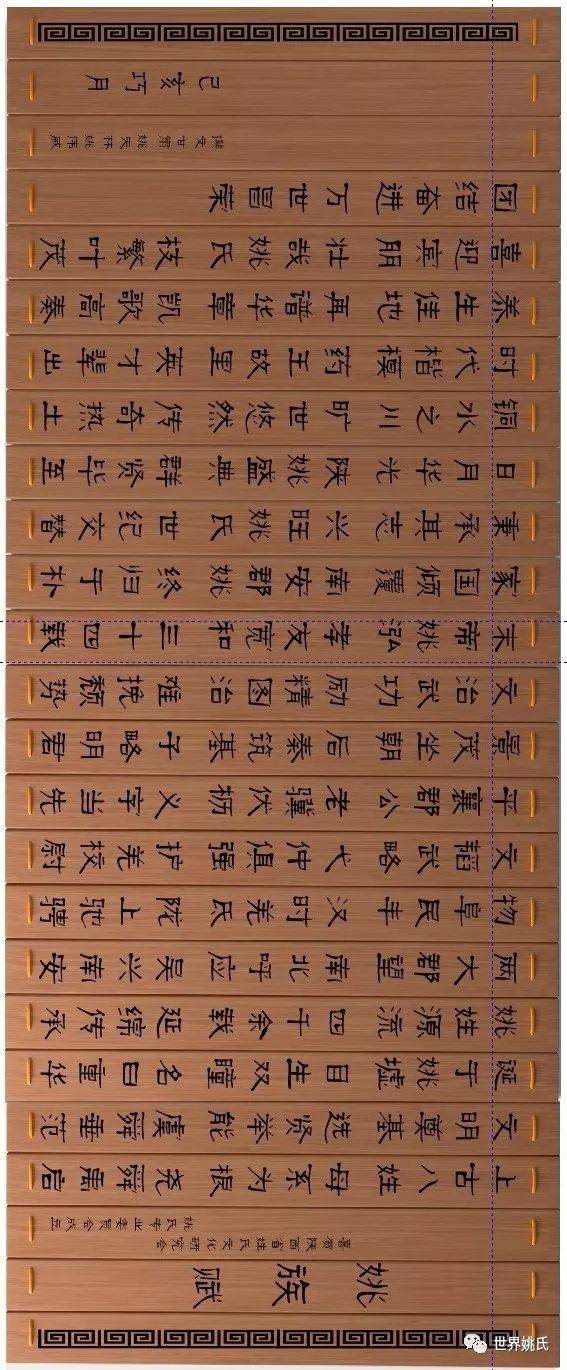 姚族赋
喜贺陕西省姓氏文化研究会
姚氏专业委员会成立
上古八姓 母系为根 尧舜禹启
文明奠基 选贤举能 虞舜垂范
诞于姚墟 目生双瞳 名曰重华
姚姓源流 四千余载 延绵传承
两大郡望 南北呼应 吴兴南安
物阜民丰 汉时羌氏 陇上驰骋
文韬武略 弋仲俱强 护羌校尉
平襄郡公 老骥伏枥 义字当先
景茂坐朝 后秦筑基 子略明君
文治武功 励精图治 难挽颓势
末帝姚泓 孝友宽和 三十四载
家国倾覆 南安郡姚 终归于朴
秉承其志 兴旺姚氏 世纪交替
日月华光 陕姚盛典 群贤毕至
铜水之川 旷世悠然 传奇热土
时代楷模 药王故里 英才辈出
养生佳地 再谱华章 凯歌高奏
喜迎宾朋 壮哉姚氏 枝繁叶茂
团结奋进 万世昌荣
撰文甘肃 姚天林 姚伟
己亥巧月
世界姚氏